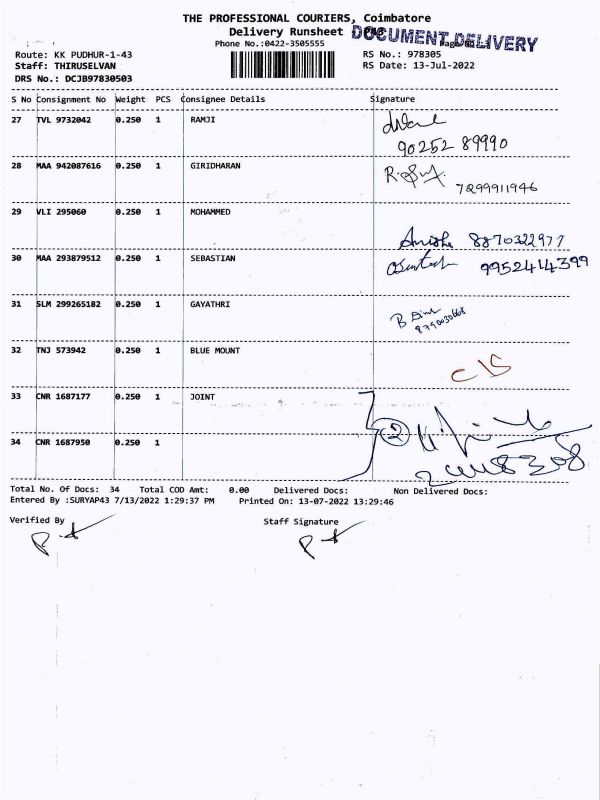 THE PROFESSIONAL COURIERS, Coimbatore
Delivery Runsheet
DOCUMENT DELIVERY
Phone No.:0422-3505555
Route: KK PUDHUR-1-43
RS No.: 978305
Staff: THIRUSELVAN
RS Date: 13-Jul-2022
DRS No.: DCJB97830503
S No Consignment No Weight PCS Consignee Details Signature
27 TVL 9732042 0.250 1 RAMJI
90252 89990
28 MAA 942087616 0.250 1 GIRIDHARAN
7299911946
29 VLI 295060 0.250 1 MOHAMMED
Anisha 8870322977
30 MAA 293879512 0.250 1 SEBASTIAN
9952414399
31 SLM 299265182 0.250 1 GAYATHRI
32 TNJ 573942 0.250 1 BLUE MOUNT
33 CNR 1687177 0.250 1 JOINT
2
34 CNR 1687950 0.250 1
Total No. Of Docs: 34 Total COD Amt: 0.00 Delivered Docs: Non Delivered Docs:
Entered By :SURYAP43 7/13/2022 1:29:37 PM Printed On: 13-07-2022 13:29:46
Verified By
Staff Signature